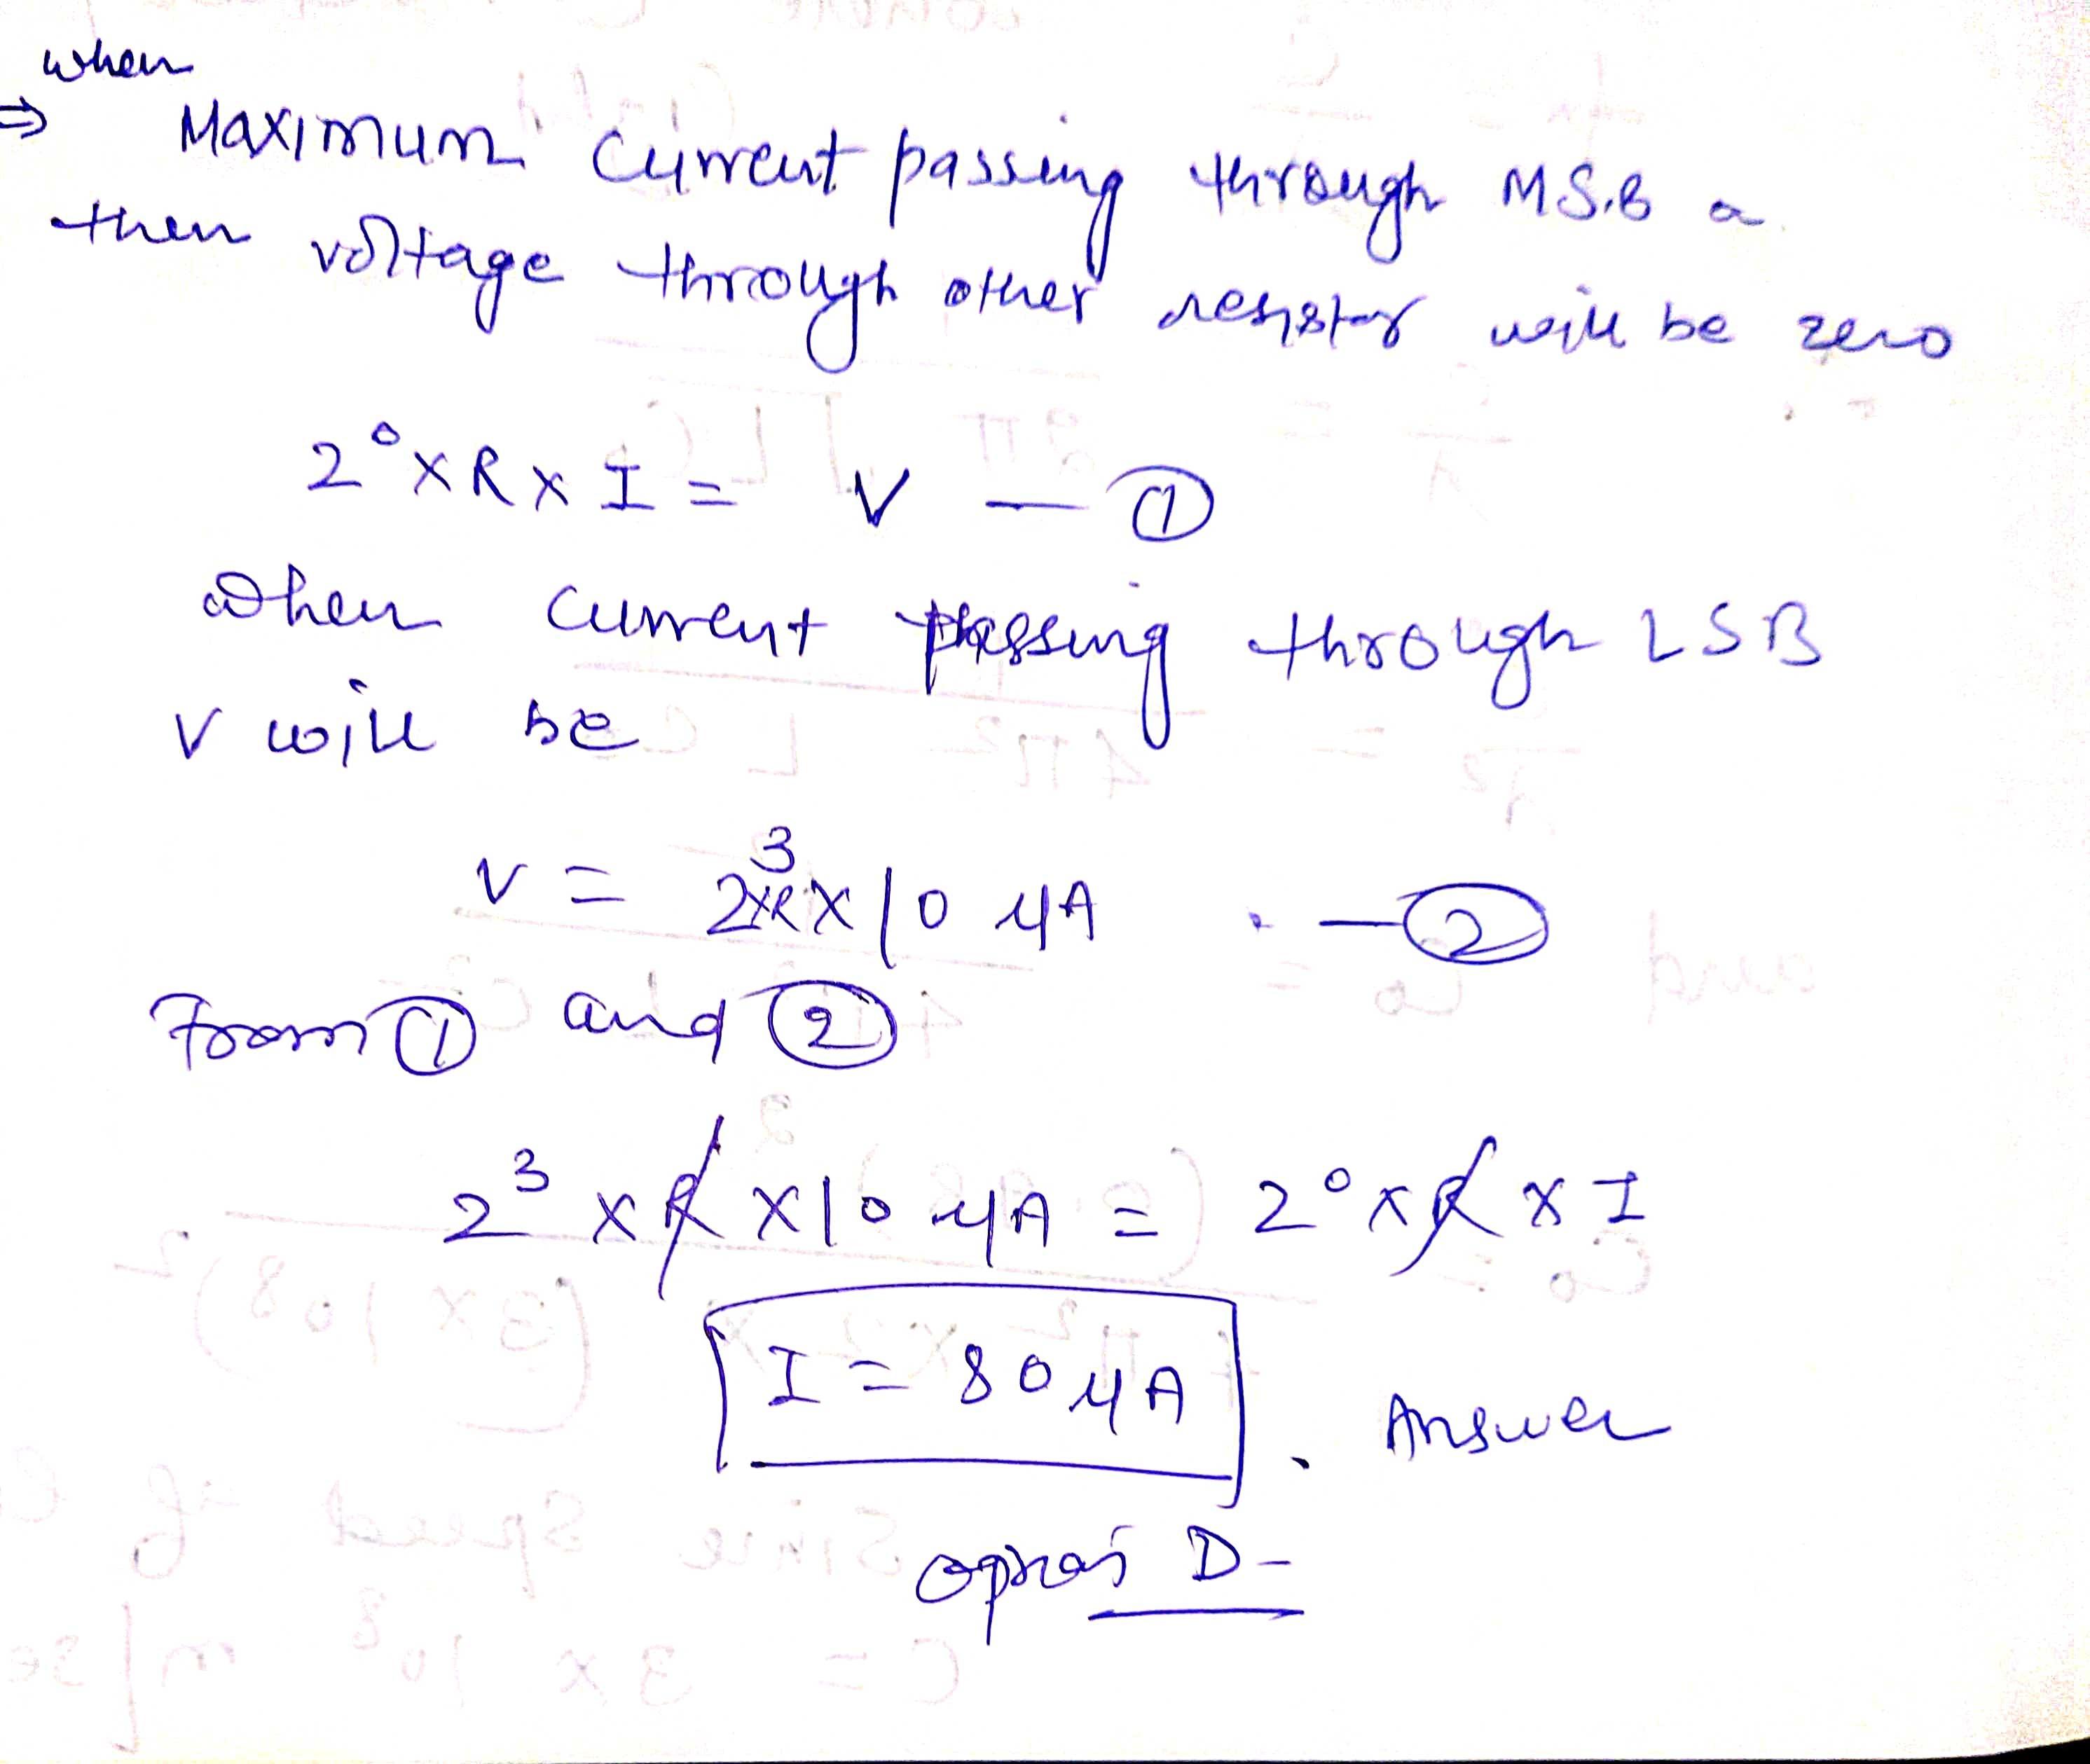 when
⇒ Maximum current passing through M.S.B a
then voltage through other resistor will be zero
2⁰ × R × I = V — ①
when current passing through LSB
V will be
V = 2³×R × 10 μA — ②
From ① and ②
2³ × R × 10 μA = 2⁰ × R × I
I = 80 μA . Answer
D -